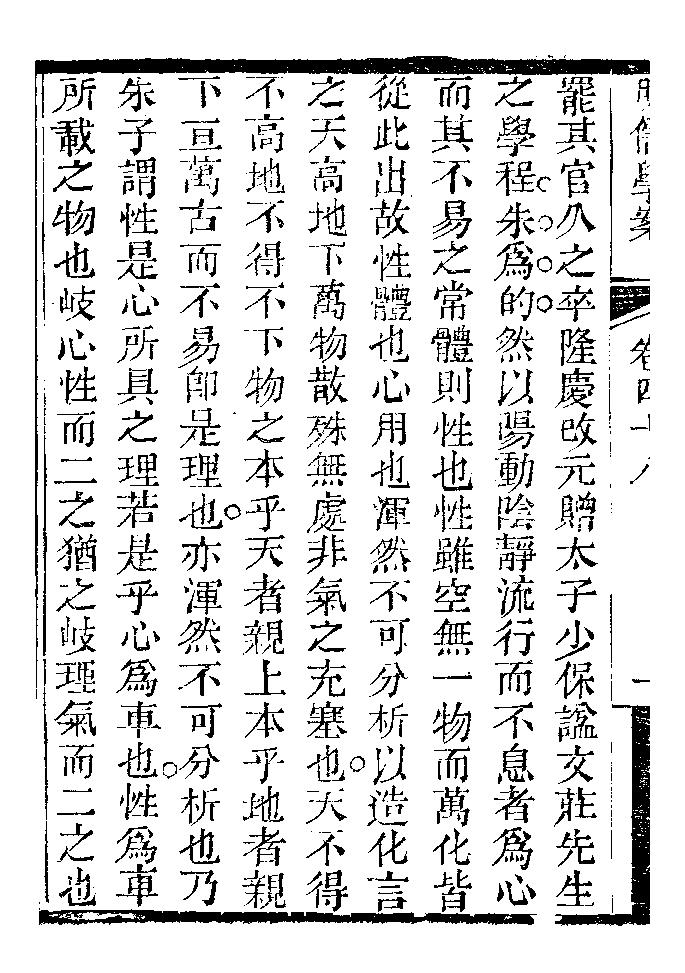 明儒學案 卷四十八 一
罷其官久之卒隆慶改元贈太子少保諡文莊先生
之學程朱爲的然以陽動陰靜流行而不息者爲心
而其不易之常體則性也性雖空無一物而萬化皆
從此出故性體也心用也渾然不可分析以造化言
之天高地下萬物散殊無處非氣之充塞也天不得
不高地不得不下物之本乎天者親上本乎地者親
下亘萬古而不易卽是理也亦渾然不可分析也乃
朱子謂性是心所具之理若是乎心爲車也性爲車
所載之物也岐心性而二之猶之岐理氣而二之也